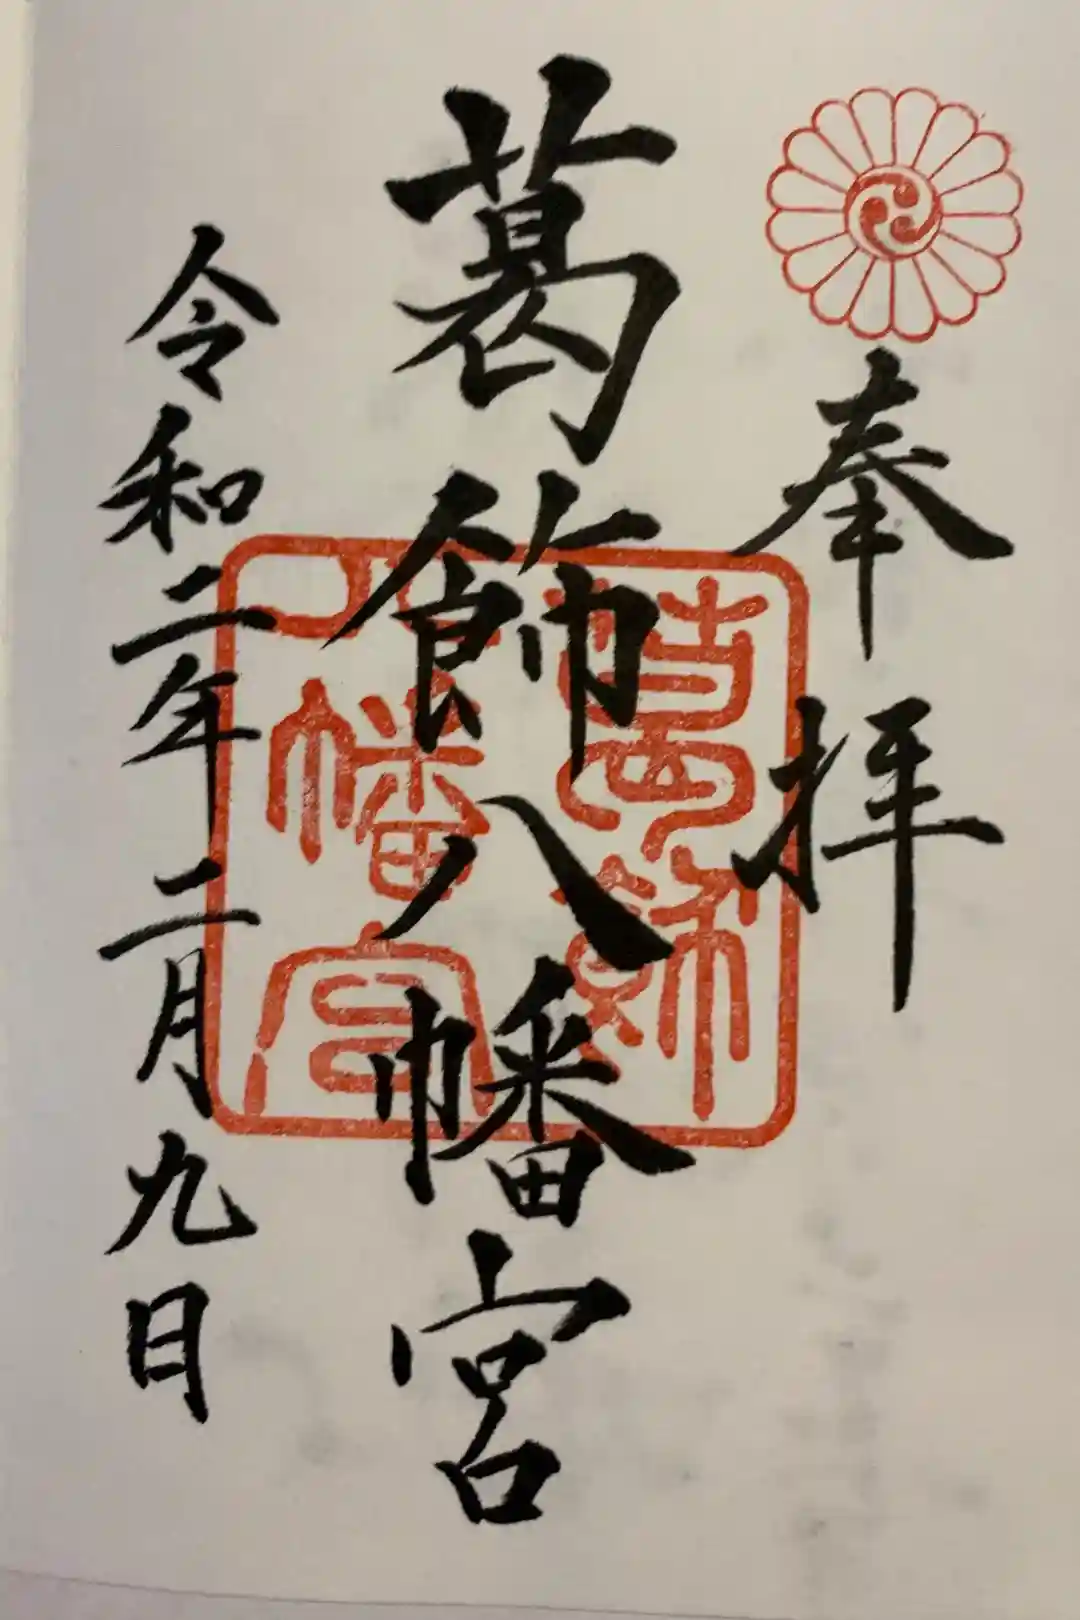 奉拝
葛飾八幡宮
葛飾八幡宮
令和二年二月九日